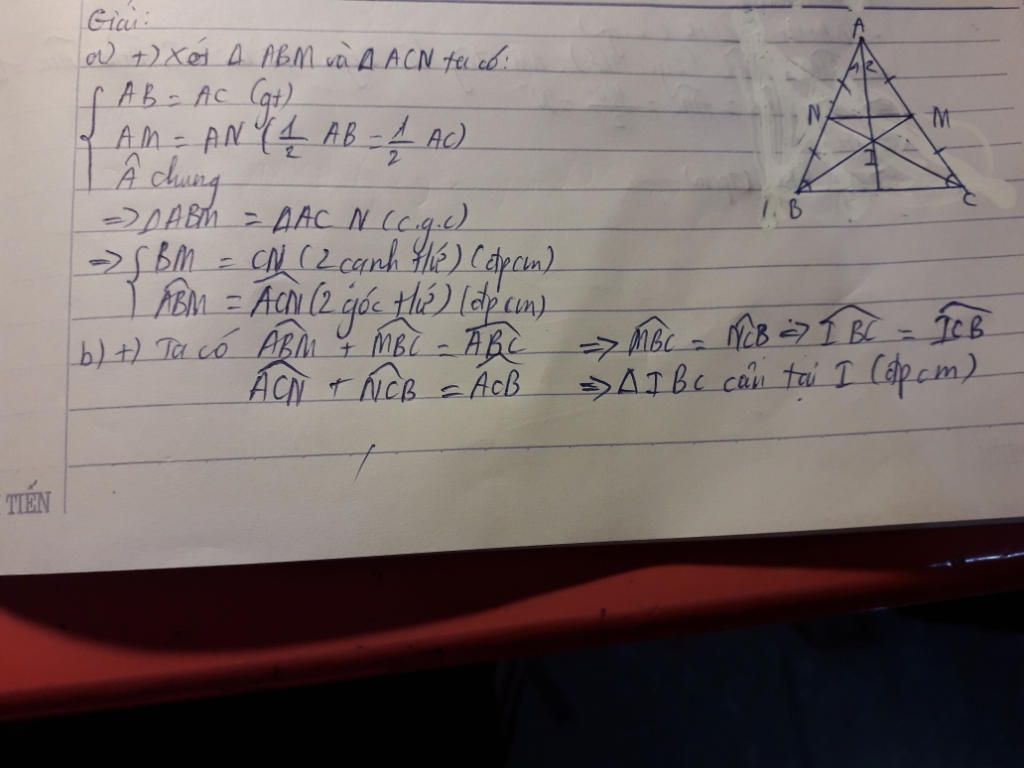 Giải:
a) +) Xét Δ ABM và Δ ACN ta có:
AB = AC (gt)
AM = AN (1/2 AB = 1/2 AC)
Â chung
=> ΔABM = ΔACN (c.g.c)
=> { BM = CN (2 cạnh tứ) (đpcm)
ABM = ACN (2 góc tứ) (đpcm)
b) +) Ta có ABM + MBC = ABC => MBC = NCB => IBC = ICB
ACN + NCB = ACB => ΔIBC cân tại I (đpcm)
A
1 2
N M
I
B C
TIẾN